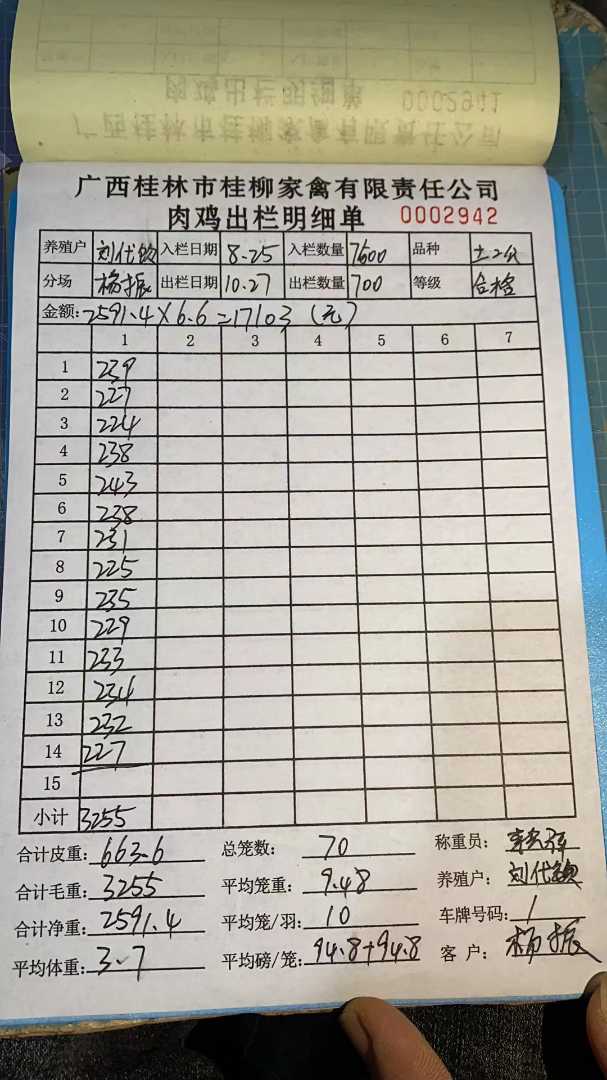 肉鸡出栏明细单 0002941
广西桂林市桂柳家禽有限责任公司
广西桂林市桂柳家禽有限责任公司
肉鸡出栏明细单 0002942
养殖户 刘代钦 入栏日期 8.25 入栏数量 7600 品种
分场 杨振 出栏日期 10.27 出栏数量 700 等级 合格
金额: 2591.4×6.6=17103 (元)
1 2 3 4 5 6 7
1 239
2 227
3 224
4 238
5 243
6 238
7 231
8 225
9 235
10 229
11 233
12 234
13 232
14 227
15
小计 3255
合计皮重: 663.6 总笼数: 70 称重员:
合计毛重: 3255 平均笼重: 9.48 养殖户: 刘代钦
合计净重: 2591.4 平均笼/羽: 10 车牌号码: 1
平均体重: 3.7 平均磅/笼: 94.8+94.8 客户: 杨振